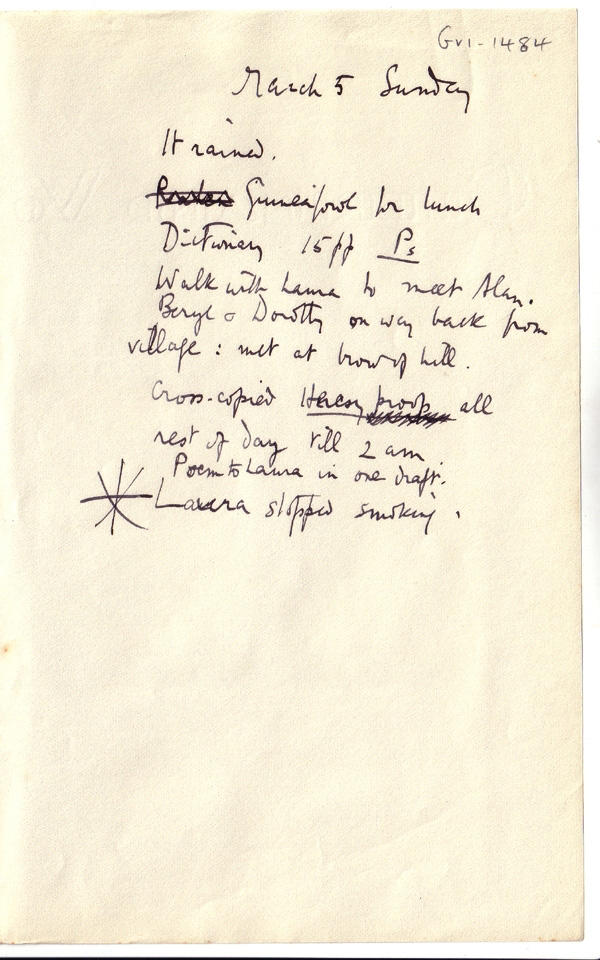 GV1-1484
March 5 Sunday
It rained.
Guineafowl for lunch
Dictionary 15 pp Ps
Walk with Laura to meet Alan.
Beryl & Dorothy on way back from
village : met at brow of hill.
Cross-copied Heresy proofs all
rest of day till 2 am.
Poem to Laura in one draft.
Laura stopped smoking.